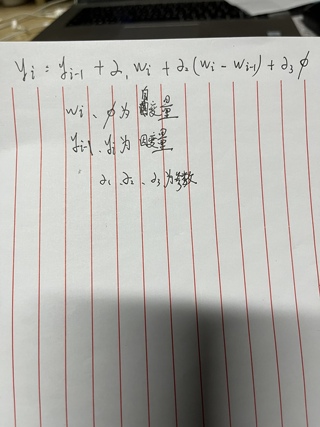 yi = yi-1 + ∂1 wi + ∂2 (wi - wi-1) + ∂3 ϕ
wi、ϕ为自变量
yi-1、yi为因变量
∂1、∂2、∂3为参数